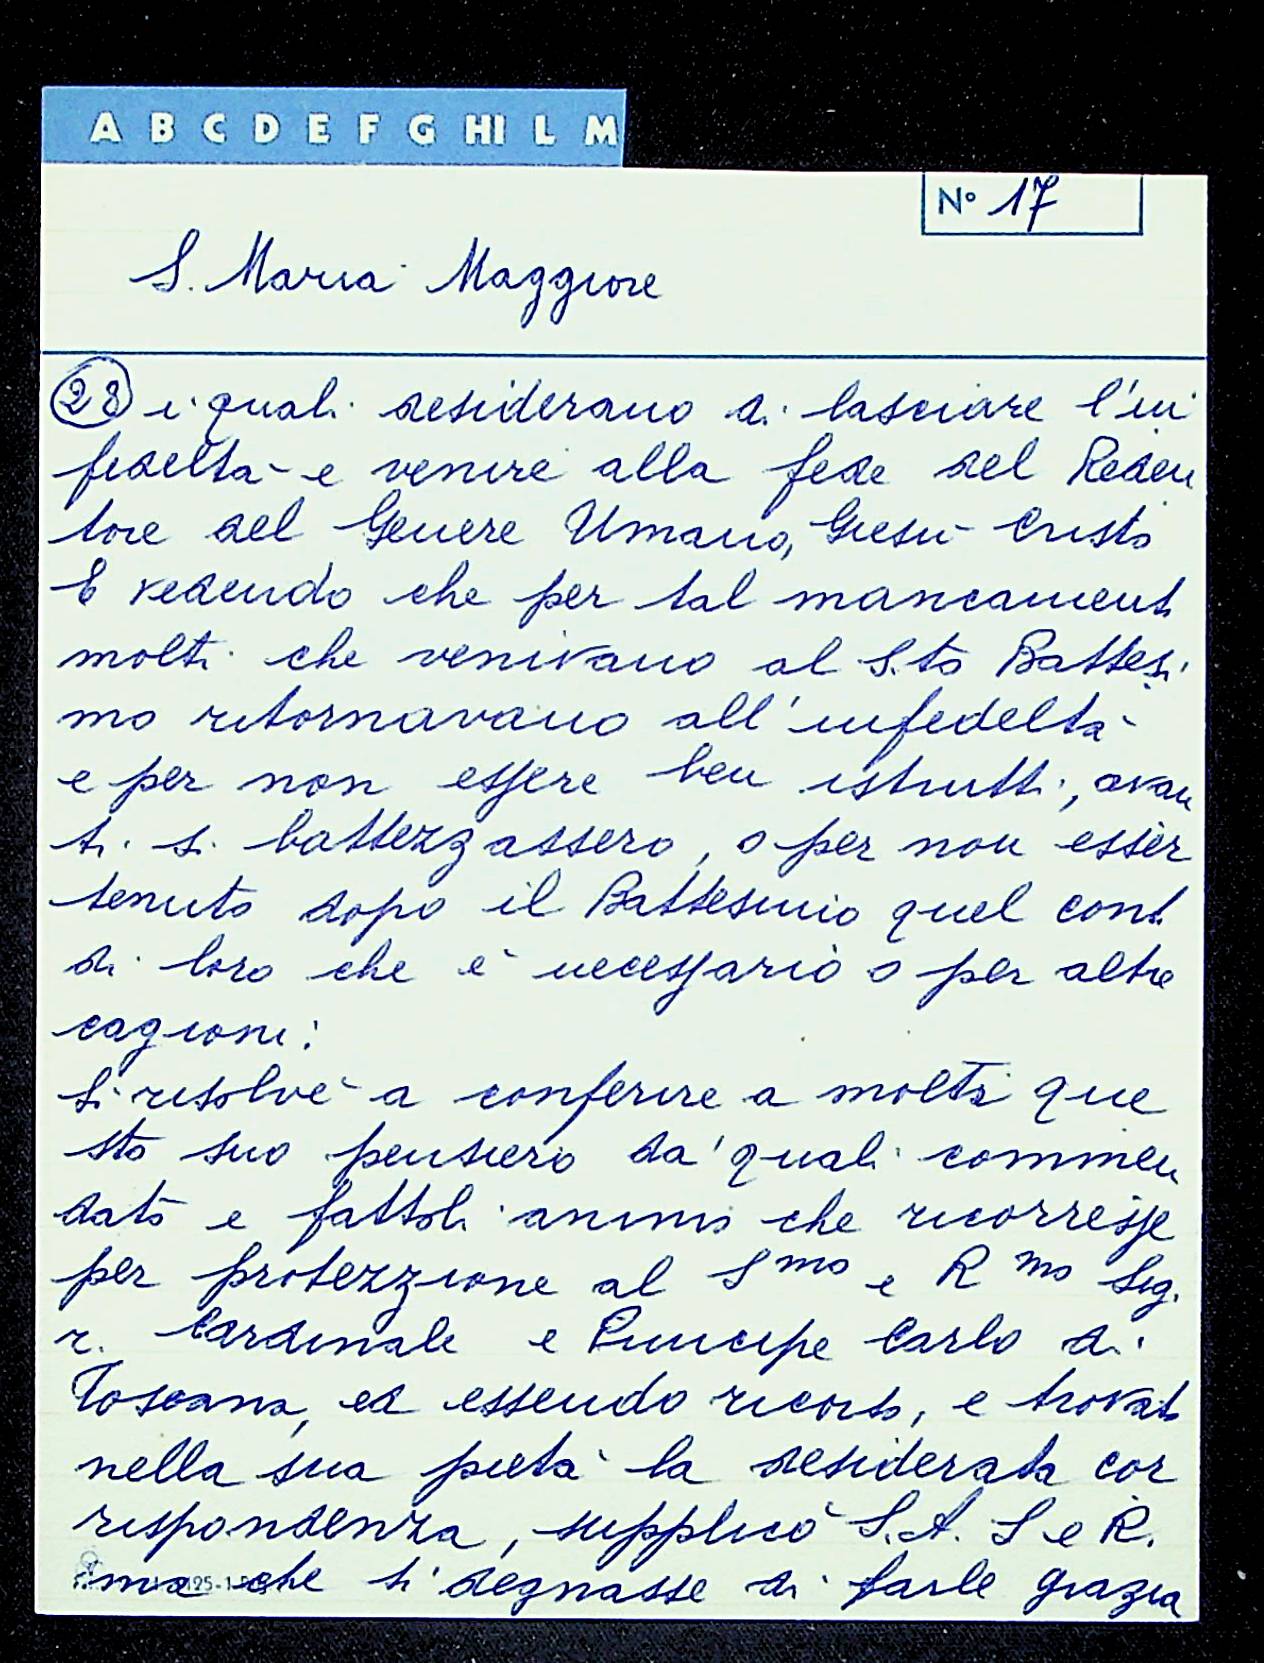 A B C D E F G HI L M
N° 17
S. Maria Maggiore
(28) i quali desiderano di lasciare l'in
fedeltà e venire alla fede del Reden
tore del Genere Umano, Giesù Cristo
E vedendo che per tal mancament
molti che venivano al S.to Battesi
mo ritornavano all'infedeltà
e per non essere ben istrutti, avan
ti si battezzassero, o per non esser
tenuto dopo il Battesimo quel cont
di loro che è necessario o per altre
cagioni:
Si risolvè a conferire a molti que
sto suo pensiero da' quali commen
dato e fattoli animo che ricorresse
per protezzione al S.mo e R.mo Sig.
r. Cardinale e Principe Carlo di
Toscana, ed essendo ricorso, e trovato
nella sua pietà la desiderata cor
rispondenza, supplicò S.A. S e R.
ma che si degnasse di farle grazia